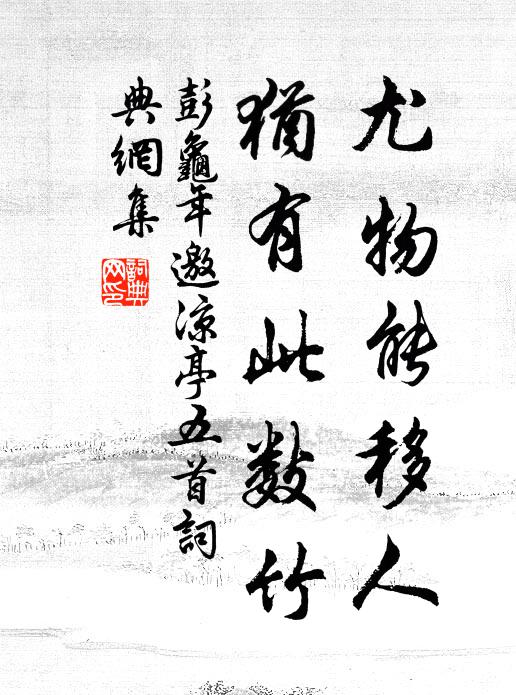 尤物能移人
猶有此数竹
彭龜年邀涼亭五首詞
典網集
詞典
网印